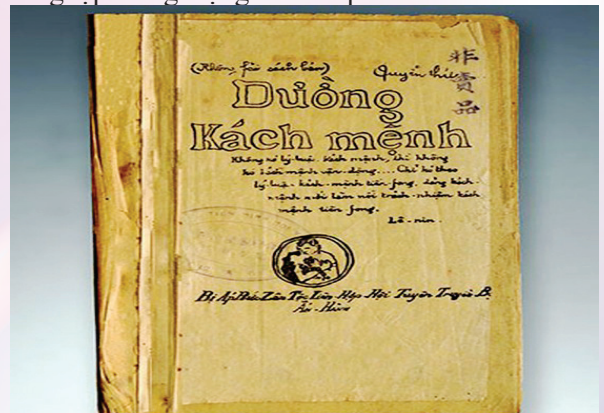 (Không fải sách bán)
Quyển thứ
非賣品
Đường
Kách mệnh
Không có lý luận kách mệnh, thì không
có kách mệnh vận-động.... Chỉ có theo
lý luận kách-mệnh tiền-fong, đảng kách
mệnh mới làm nổi trách-nhiệm kách
mệnh tiền fong.
Lê-nin.
Bị Áp Bức Zân Tộc Liên Hợp Hội Tuyên Truyền Bộ
Ấn-Hành